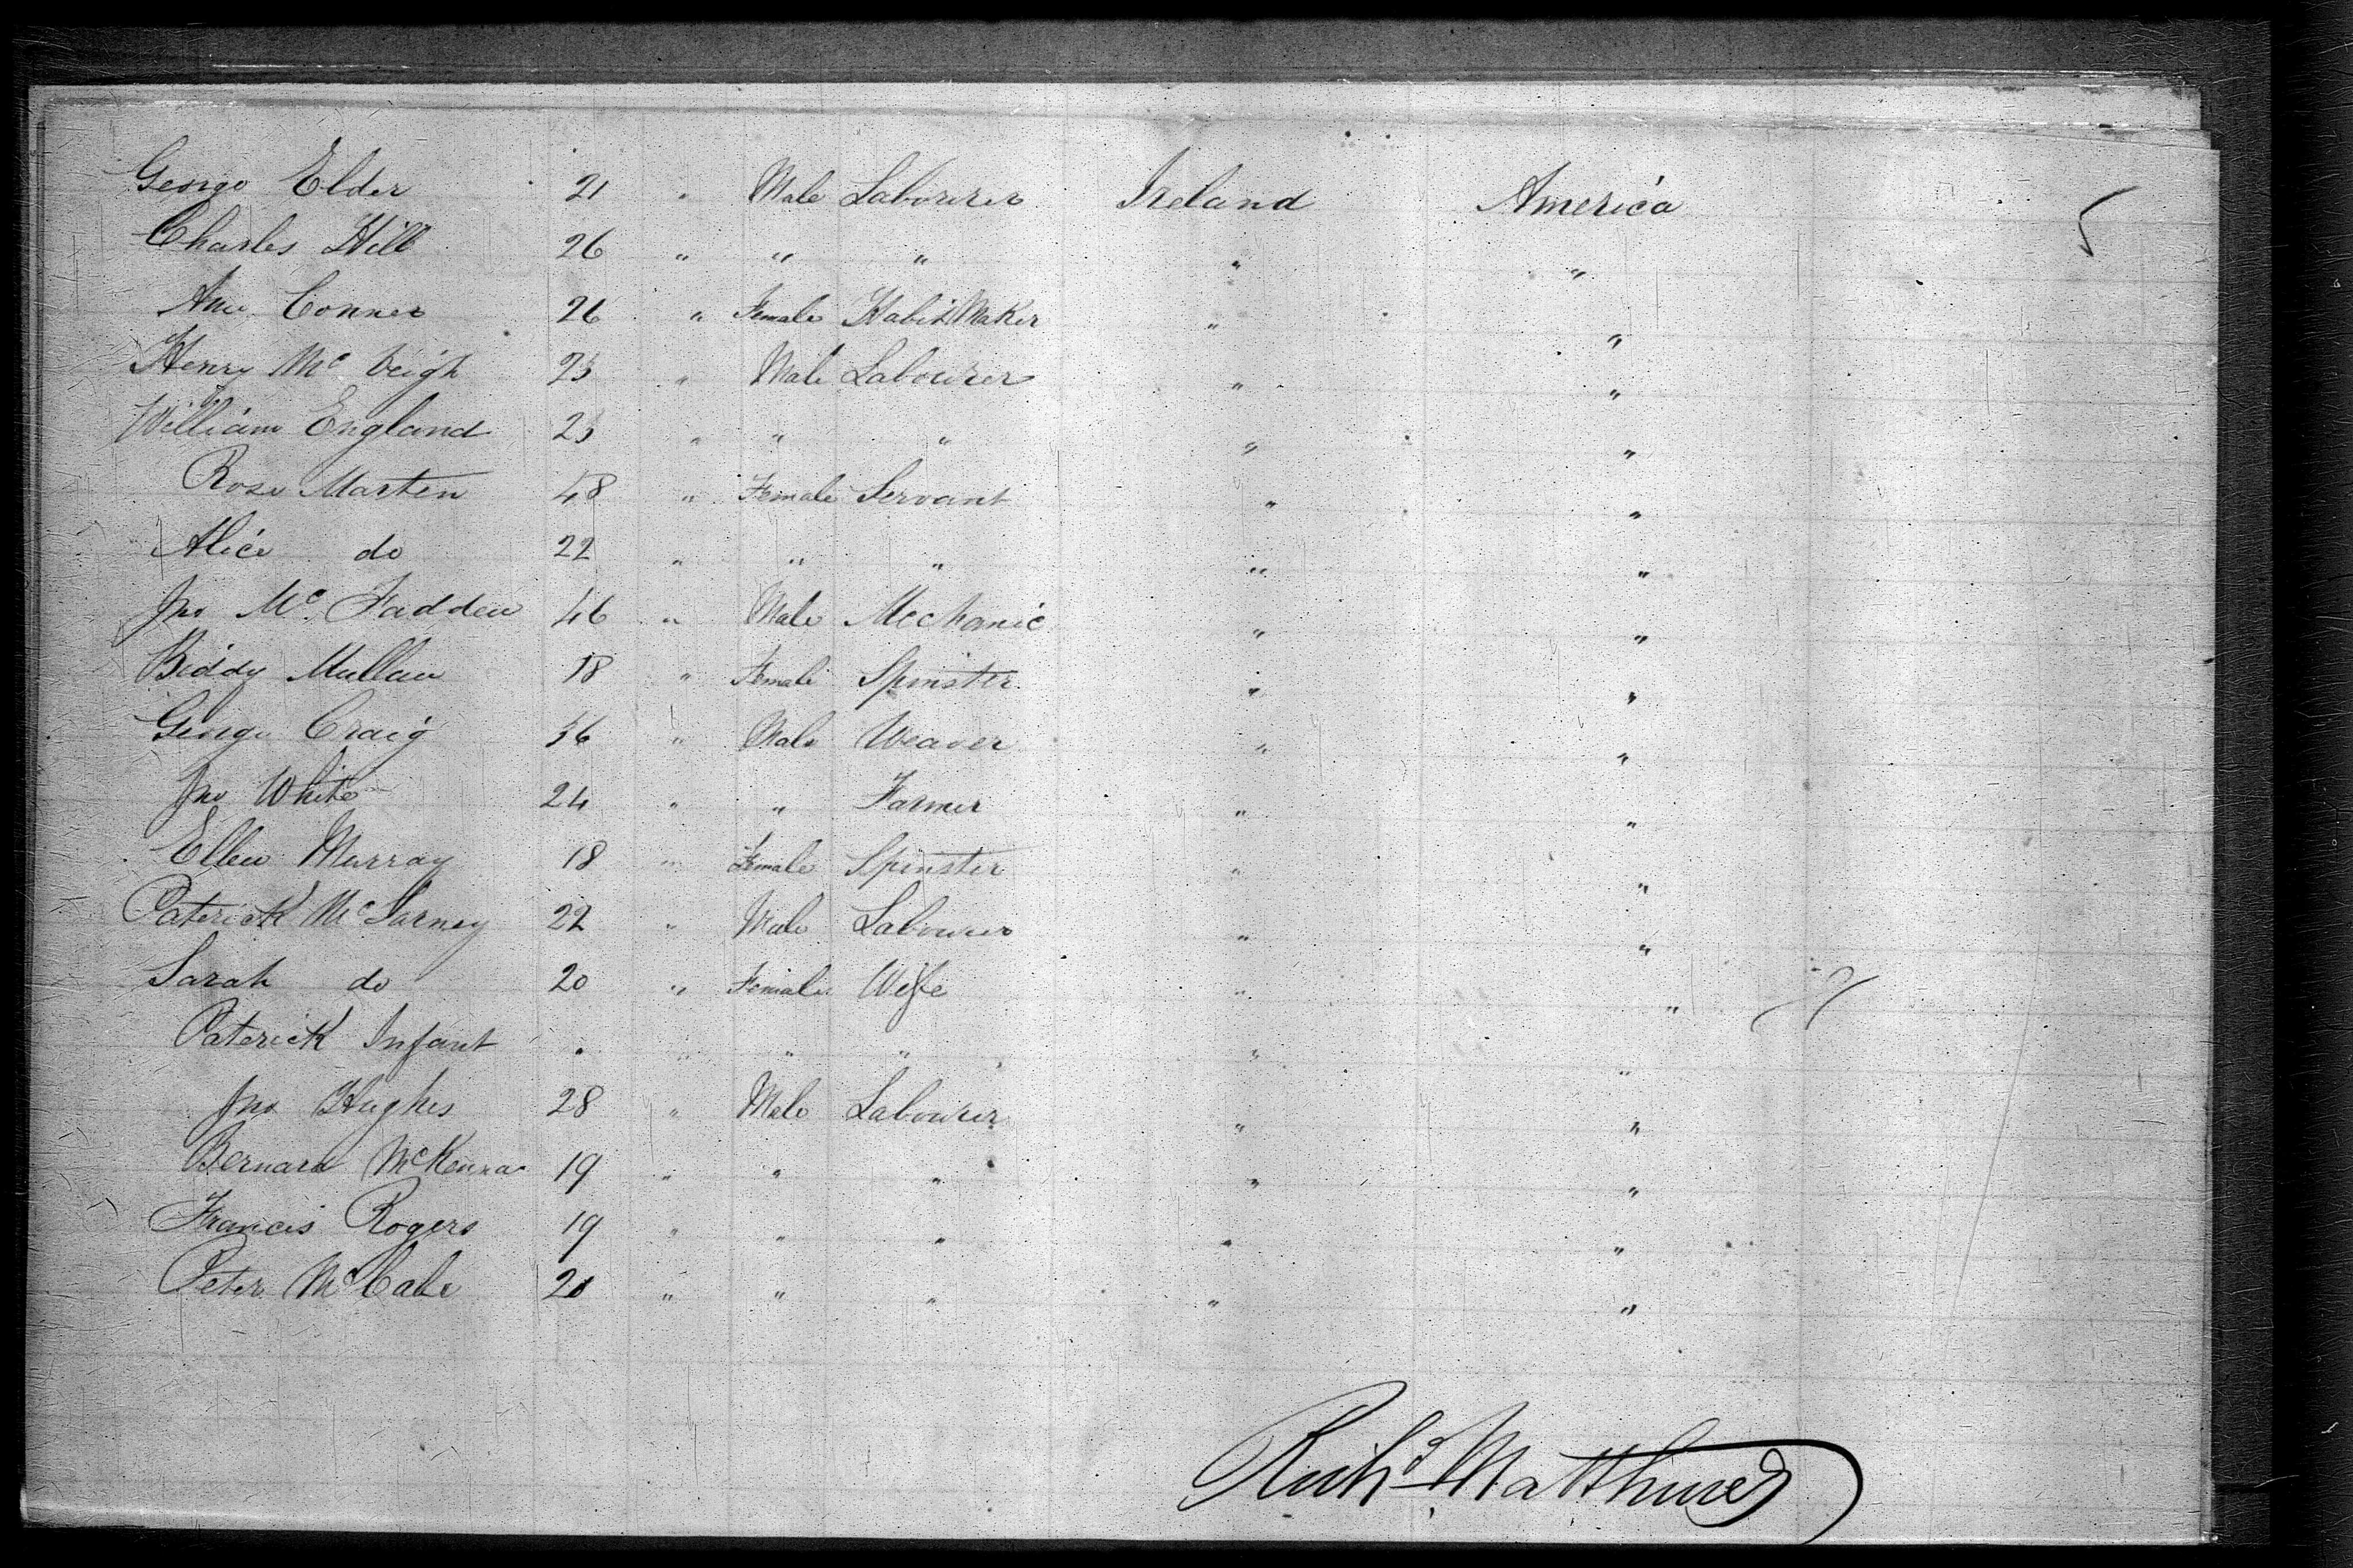 George Elder 21 " Male Labourer Ireland America
Charles Hill 26 " " " " "
Ann Conner 26 " Female Habit Maker " "
Henry Mc Veigh 23 " Male Labourer " "
William England 23 " " " " "
Rose Marten 48 " Female Servant " "
Alice do 22 " " " " "
Jno Mc Fadden 46 " Male Mechanic " "
Biddy Mullan 18 " Female Spinster " "
George Craig 36 " Male Weaver " "
Jno White 24 " " Farmer " "
Ellen Murray 18 " Female Spinster " "
Paterick Mc 22 " Male Labourer " "
Sarah do 20 " Female Wife " "
Paterick Infant . " " " " "
Jno Hughes 28 " Male Labourer " "
Bernard McKenna 19 " " " " "
Francis Rogers 19 " " " " "
Peter McCabe 20 " " " " "
Richd Matthews